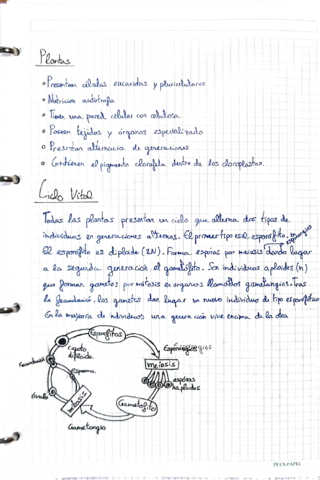 Plantas
• Presentan células eucariotas y pluricelulares
• Nutrición autótrofa
• Tienen una pared celular con celulosa
• Poseen tejidos y órganos especializado
• Presentan alternancia de generaciones
• Contienen el pigmento clorofila dentro de los cloroplastos.
Ciclo Vital
Todas las plantas presentan un ciclo que alterna dos tipos de
individuos en generaciones alternas. El primer tipo es el esporofito.
El esporofito es diploide (2N). Forma esporas por meiosis dando lugar
a la segunda generación, el gametofito. Son individuos aploides (n)
que forman gametos por mitosis en órganos llamados gametangios. Tras
la fecundación, los gametos dan lugar un nuevo individuo de tipo esporofítico
En la mayoría de individuos una generación vive encima de la otra
Esporofitos
Cigoto
diploide
Esporangios
Fecundación
meiosis
Esperma
esporas
haploides
óvulo
mitosis
Gametofito
Gametangio